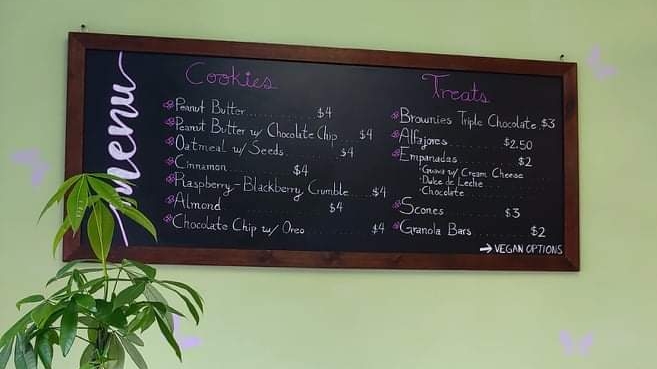 menu
Cookies
Peanut Butter.............. $4
Peanut Butter w/ Chocolate Chip.... $4
Oatmeal w/ Seeds............ $4
Cinnamon............ $4
Raspberry-Blackberry Crumble.... $4
Almond.................. $4
Chocolate Chip w/ Oreo............ $4
Treats
Brownies Triple Chocolate.$3
Alfajores.......... $2.50
Empanadas............ $2
Guava w/ Cream Cheese
Dulce de Leche
Chocolate
Scones............ $3
Granola Bars............ $2
→ VEGAN OPTIONS